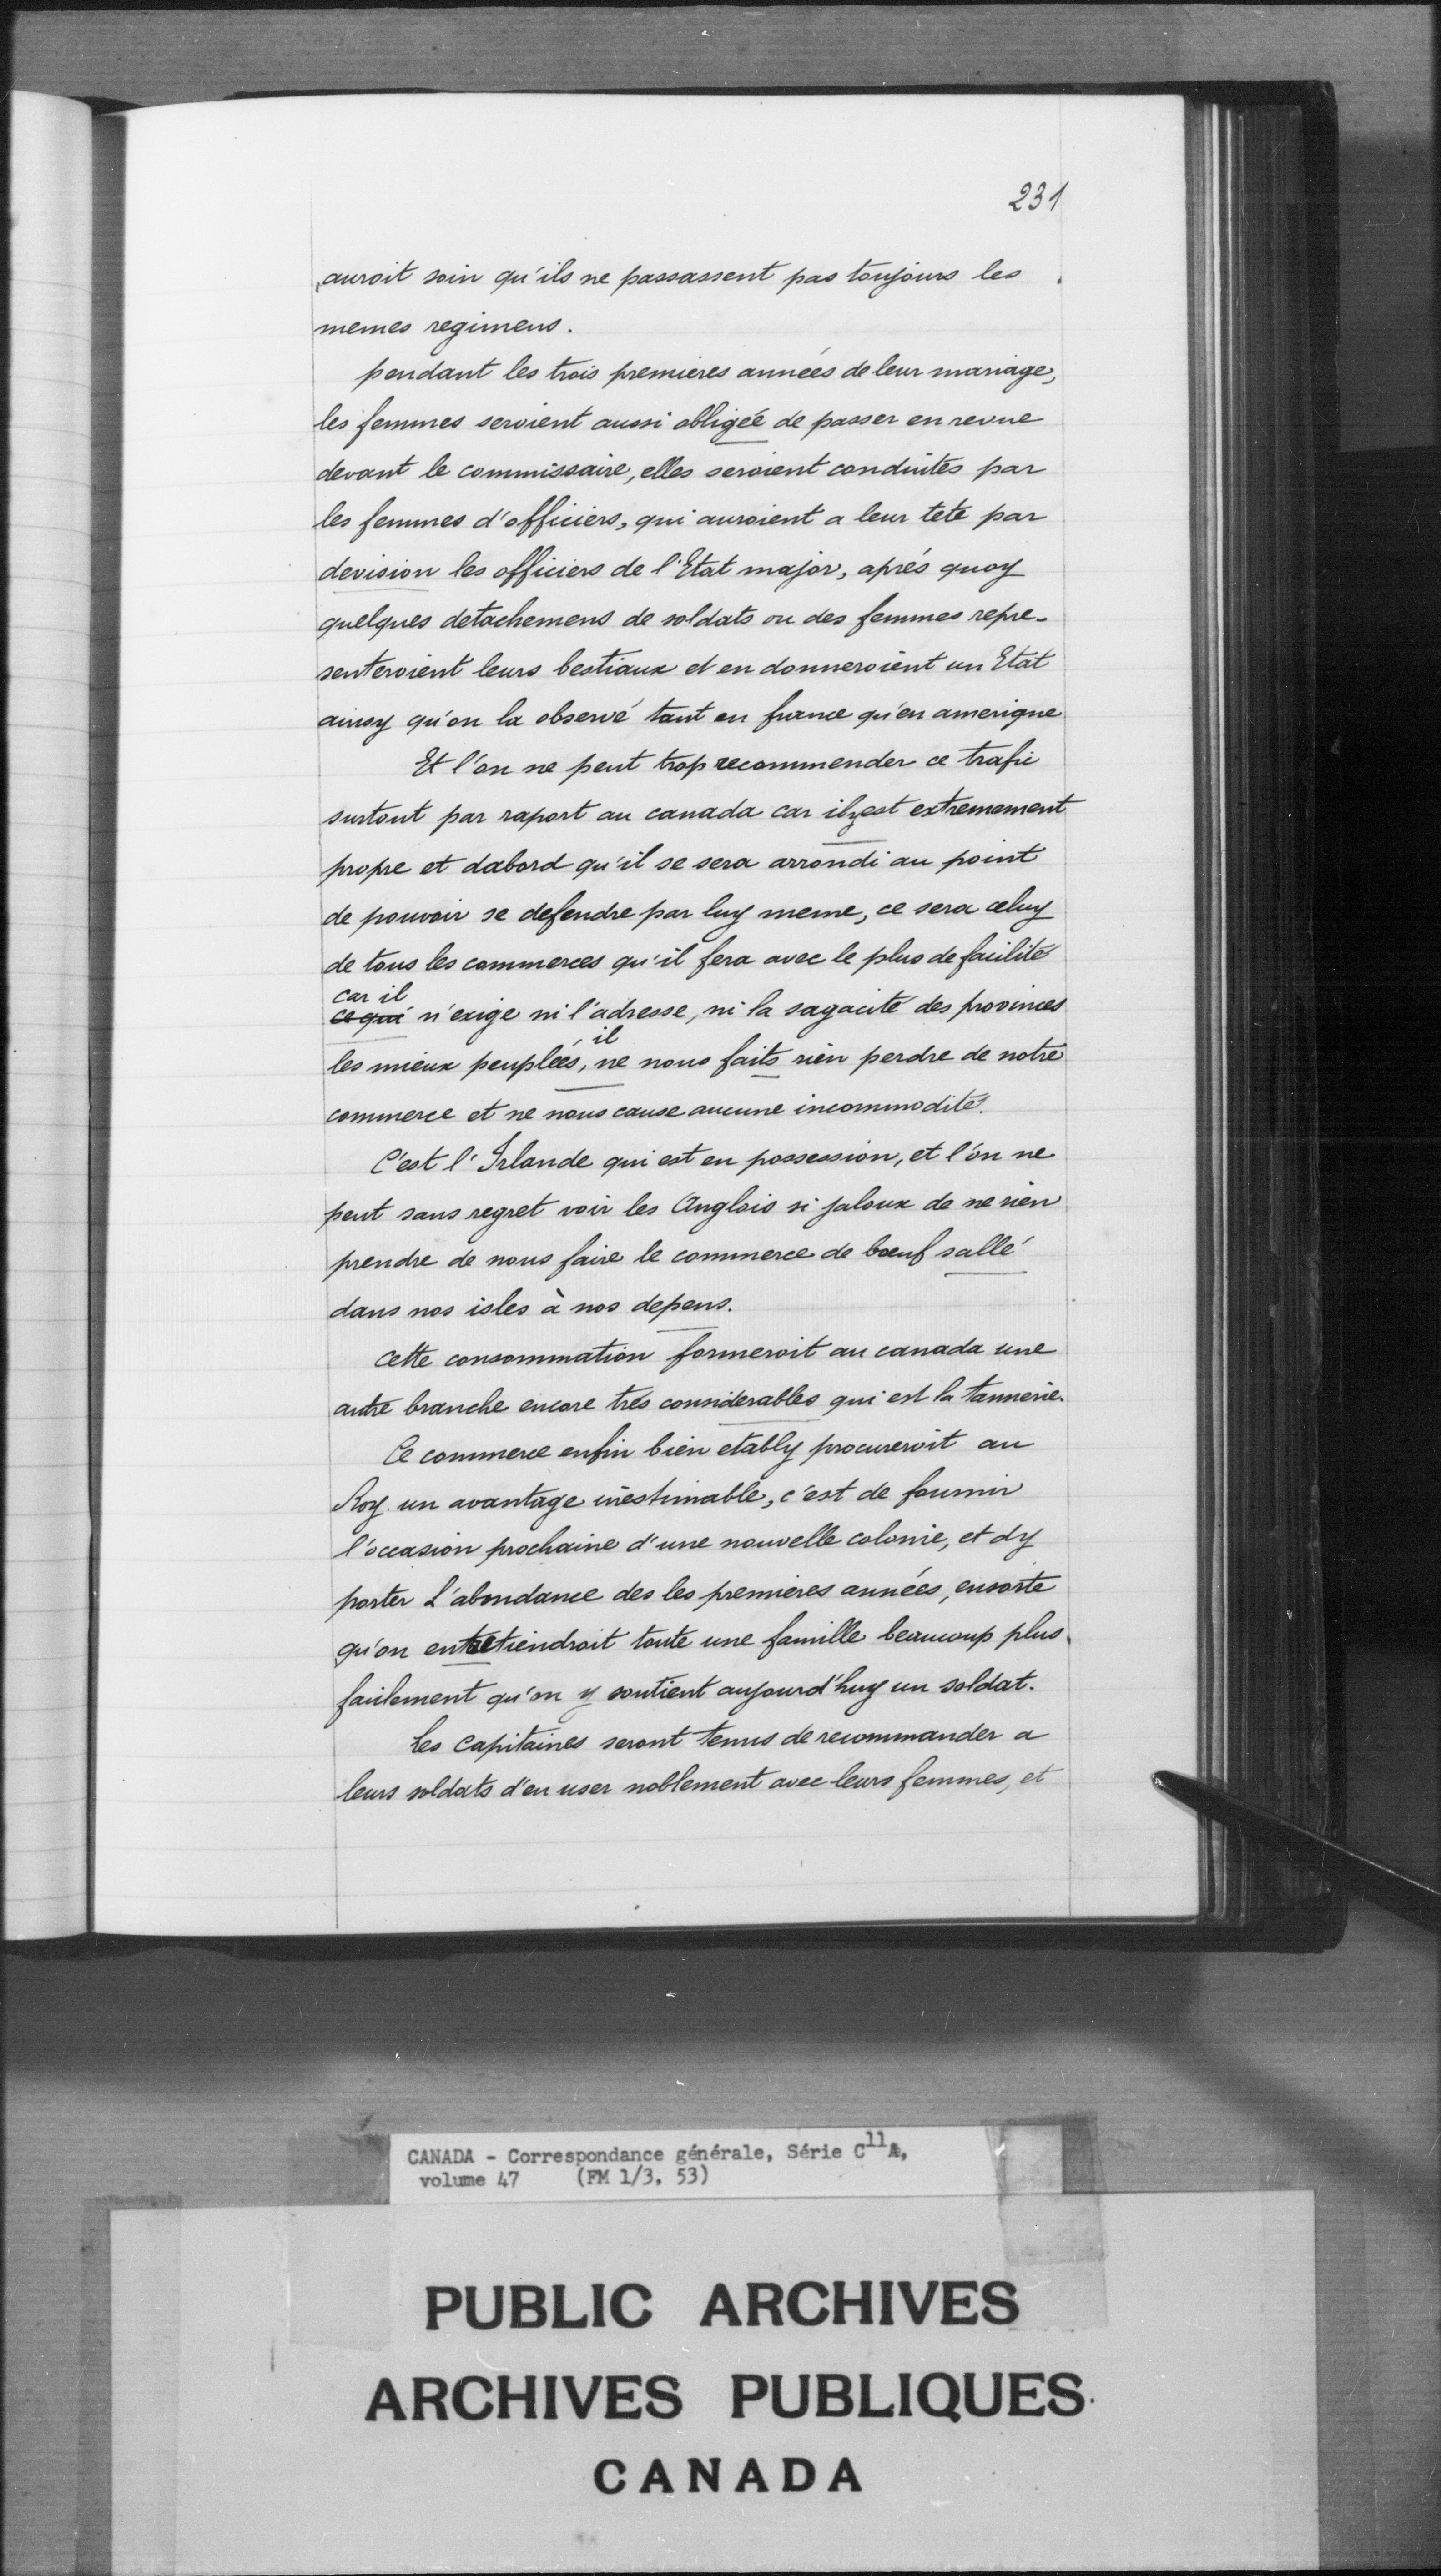 231
auroit soin qu'ils ne passassent pas toujours les
memes regimens.
pendant les trois premieres années de leur mariage,
les femmes seroient aussi obligée de passer en revue
devant le commissaire, elles seroient conduites par
les femmes d'officiers, qui auroient a leur tete par
devision les officiers de l'Etat major, aprés quoy
quelques detachemens de soldats ou des femmes repre-
senteroient leurs bestiaux et en donneroient un Etat
ainsy qu'on la observé tant en france qu'en amerique
Et l'on ne peut trop recommender ce trafic
surtout par raport au canada car il y est extremement
propre et dabord qu'il se sera arrondi au point
de pouvoir se defendre par luy meme, ce sera celuy
de tous les commerces qu'il fera avec le plus de facilité
car il
ce qui n'exige ni l'adresse, ni la sagacité des provinces
il
les mieux peuplées, ne nous faits rien perdre de notre
commerce et ne nous cause aucune incommodité.
C'est l'Irlande qui est en possession, et l'on ne
peut sans regret voir les Anglois si jaloux de ne rien
prendre de nous faire le commerce de bœuf sallé
dans nos isles à nos depens.
Cette consommation formeroit au canada une
autre branche encore trés considerables qui est la tannerie.
Ce commerce enfin bien etably procureroit au
Roy un avantage inestimable, c'est de fournir
l'occasion prochaine d'une nouvelle colonie, et dy
porter L'abondance des les premieres années, ensorte
qu'on entretiendroit toute une famille beaucoup plus
facilement qu'on y soutient aujourd'huy un soldat.
Les Capitaines seront tenus de recommander a
leurs soldats d'en user noblement avec leurs femmes, et
CANADA - Correspondance générale, Série C11A,
volume 47 (FM 1/3, 53)
PUBLIC ARCHIVES
ARCHIVES PUBLIQUES
CANADA